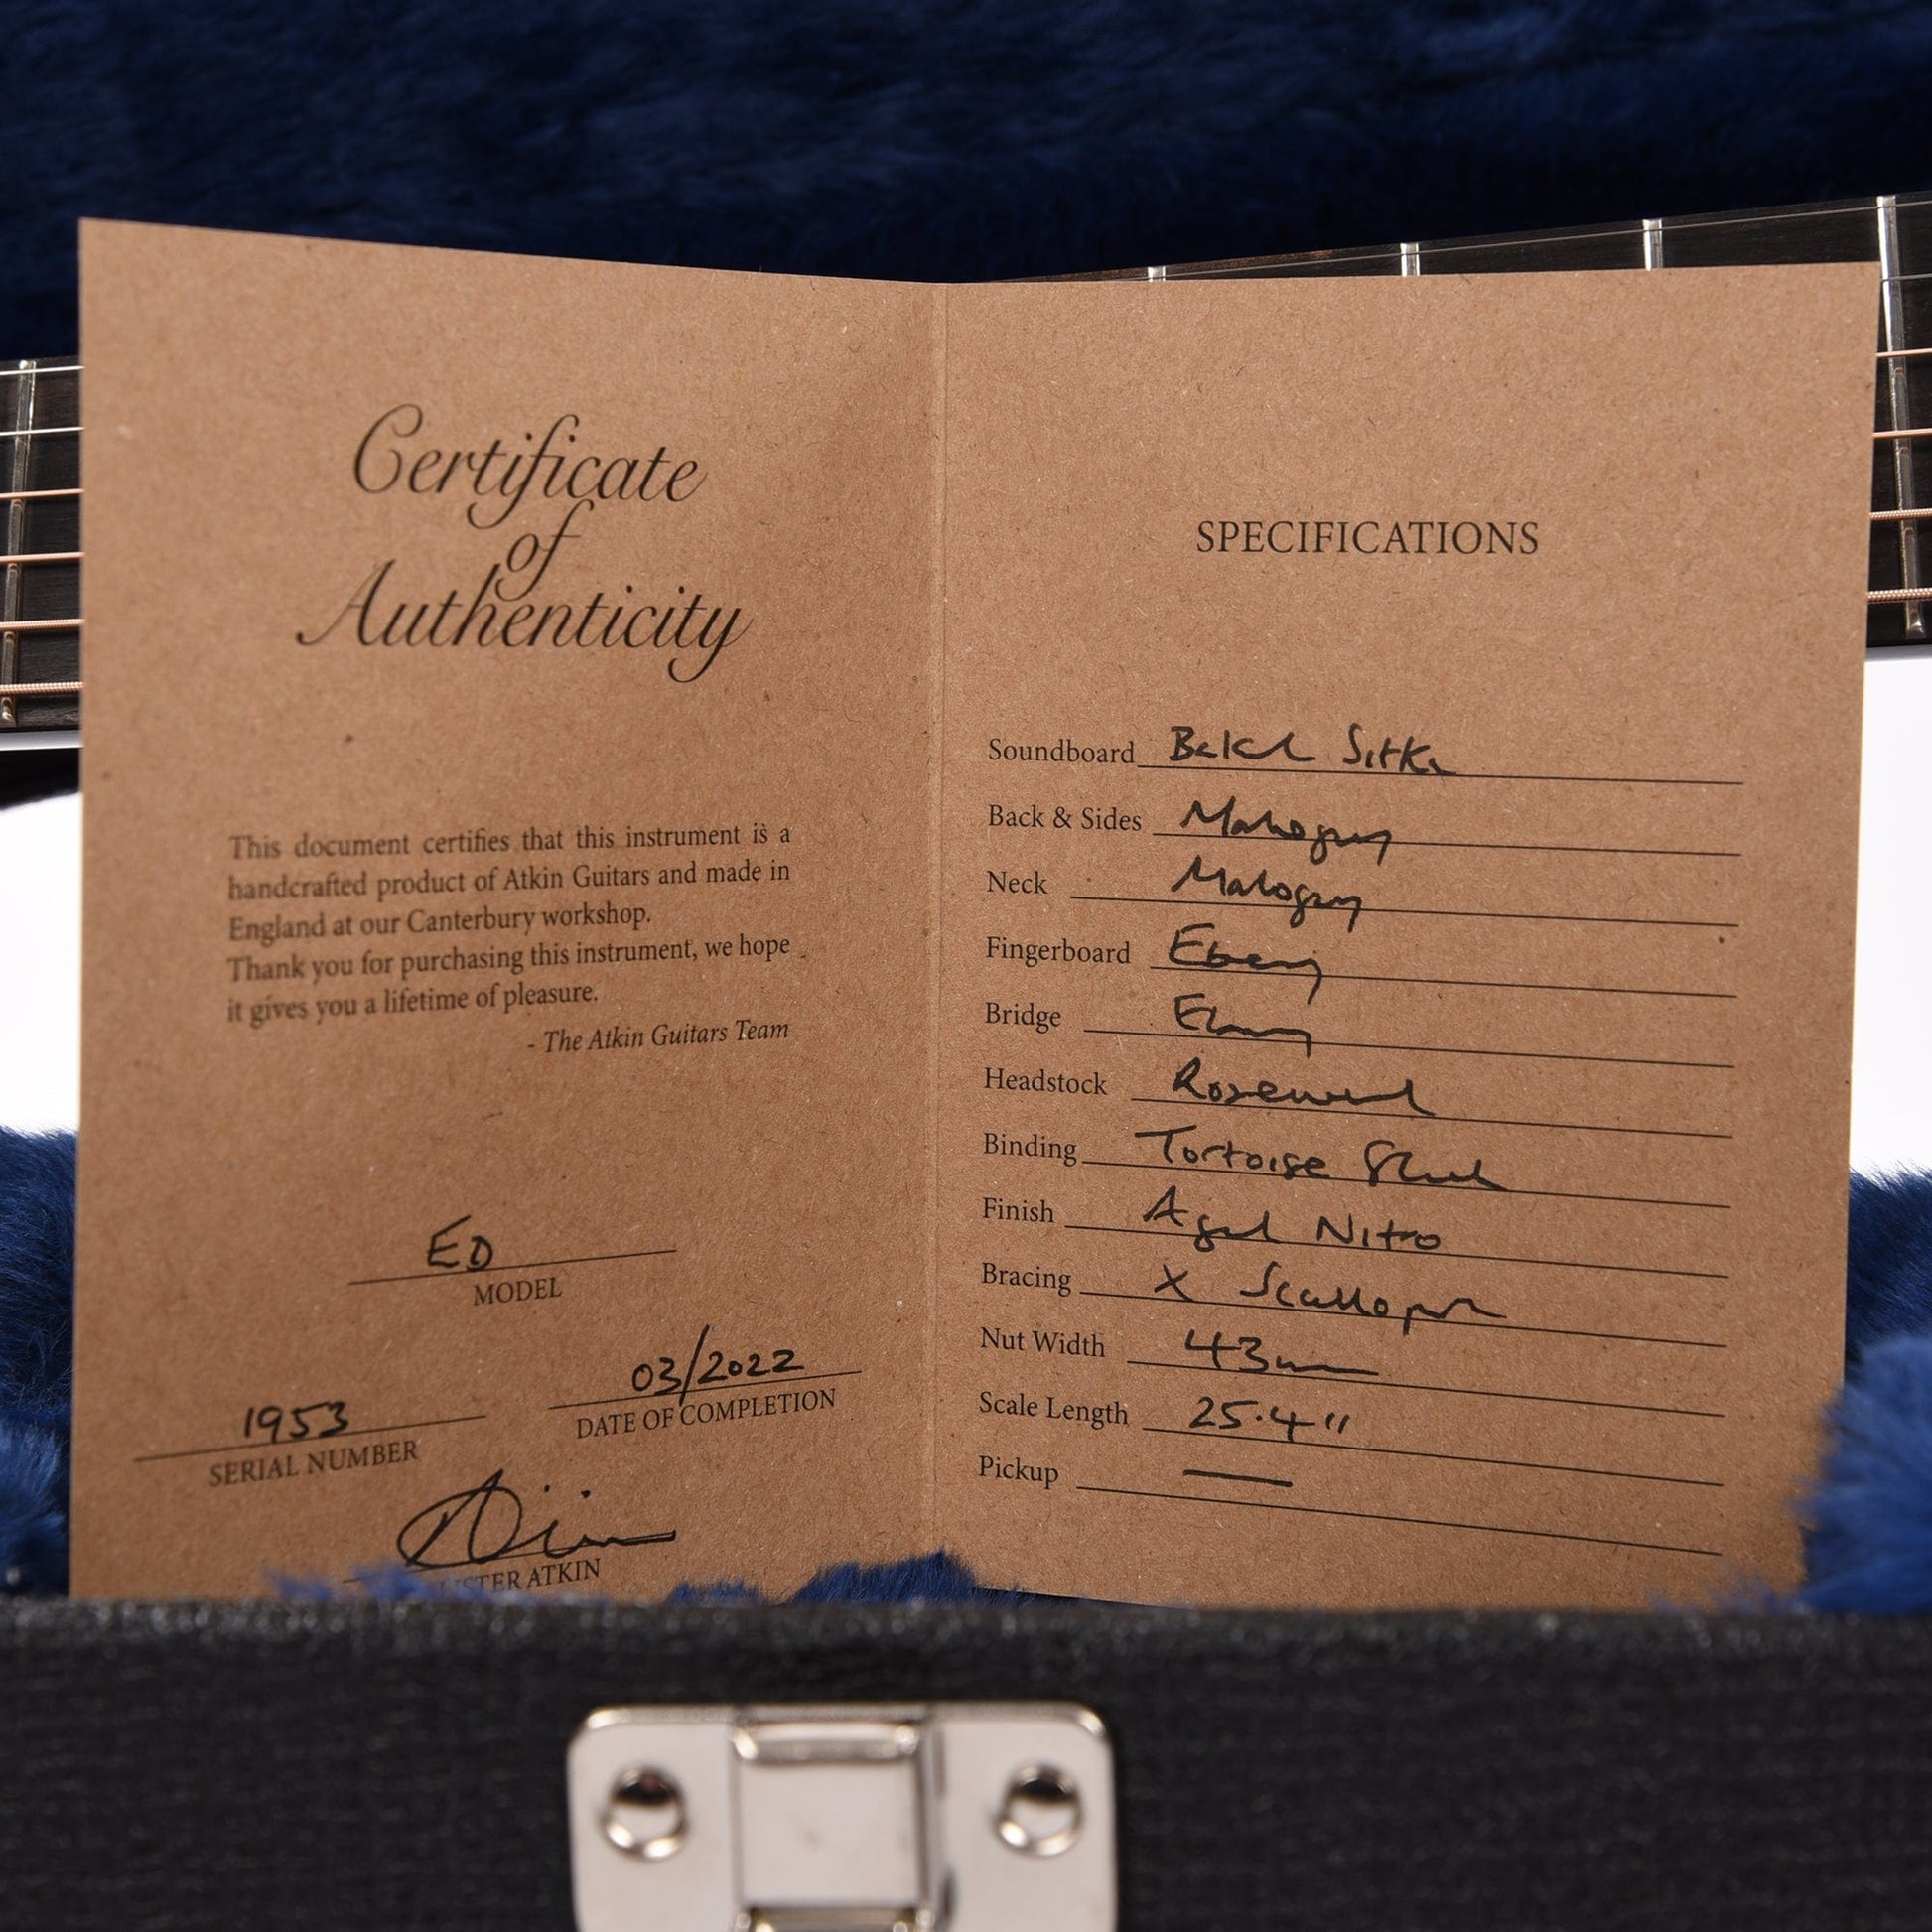 Certificate
of
Authenticity
This document certifies that this instrument is a
handcrafted product of Atkin Guitars and made in
England at our Canterbury workshop.
Thank you for purchasing this instrument, we hope
it gives you a lifetime of pleasure.
- The Atkin Guitars Team
ED
MODEL
1953
SERIAL NUMBER
03/2022
DATE OF COMPLETION
ATKIN
SPECIFICATIONS
Soundboard Baked Sitka
Back & Sides Mahogany
Neck Mahogany
Fingerboard Ebony
Bridge Ebony
Headstock Rosewood
Binding Tortoise Shell
Finish Aged Nitro
Bracing X Scalloped
Nut Width 43mm
Scale Length 25.4"
Pickup —